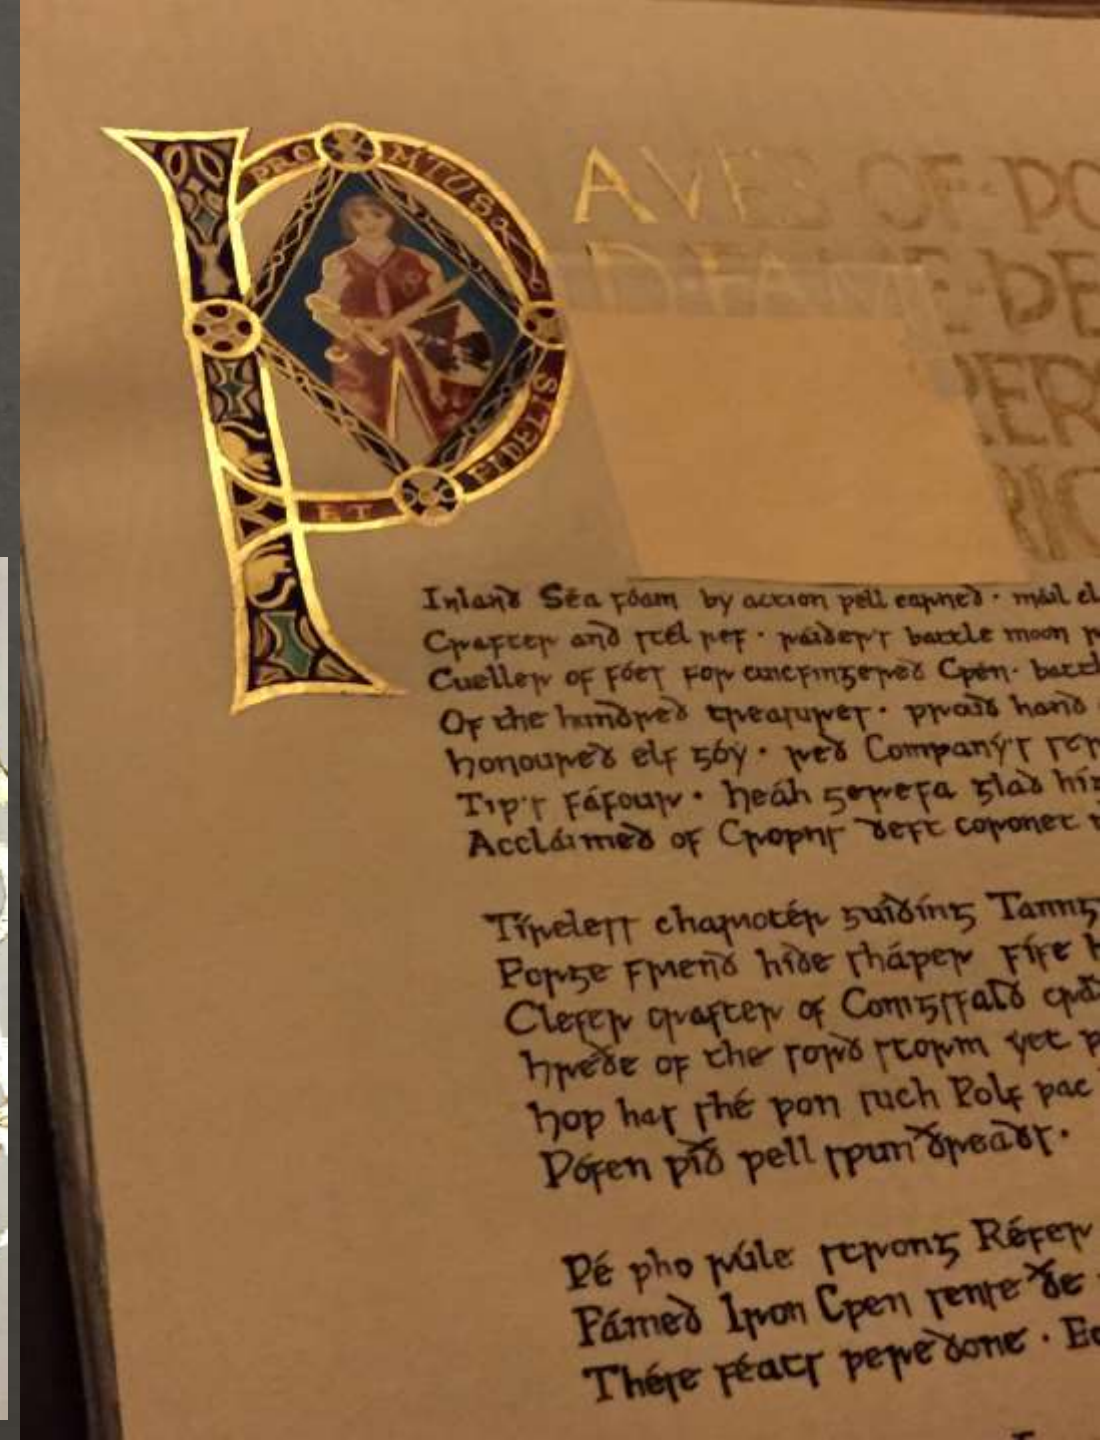 PROMTUS
ET FIDELIS
ǷAVES OF·ǷO
D·FAME·ǷE
ER
RIC
Inland Séa fóam by action ƿell earned · máil el
Crafter and stél ref · ráider's battle moon
Cueller of fóet for cuicfingered Cƿén· battl
Of the hundred treasures · hand
honoured elf góy · red Company's
Tiƿ's fáfour · heáh gerefa glad
Acclaímed of Croƿns deft coronet
Tíreless charioteer guídíng Tanng
Forge friend híde sháper fíre h
Clefer crafter of
hréde of the sord storm yet
hoƿ has shé ƿon such Ƿolf pac
Ƿófen ƿið ƿell spun dreads·
Ƿé ƿho rúle strong Réfer
Fámed Iron Cƿen
Thése féats ƿere done · Eo